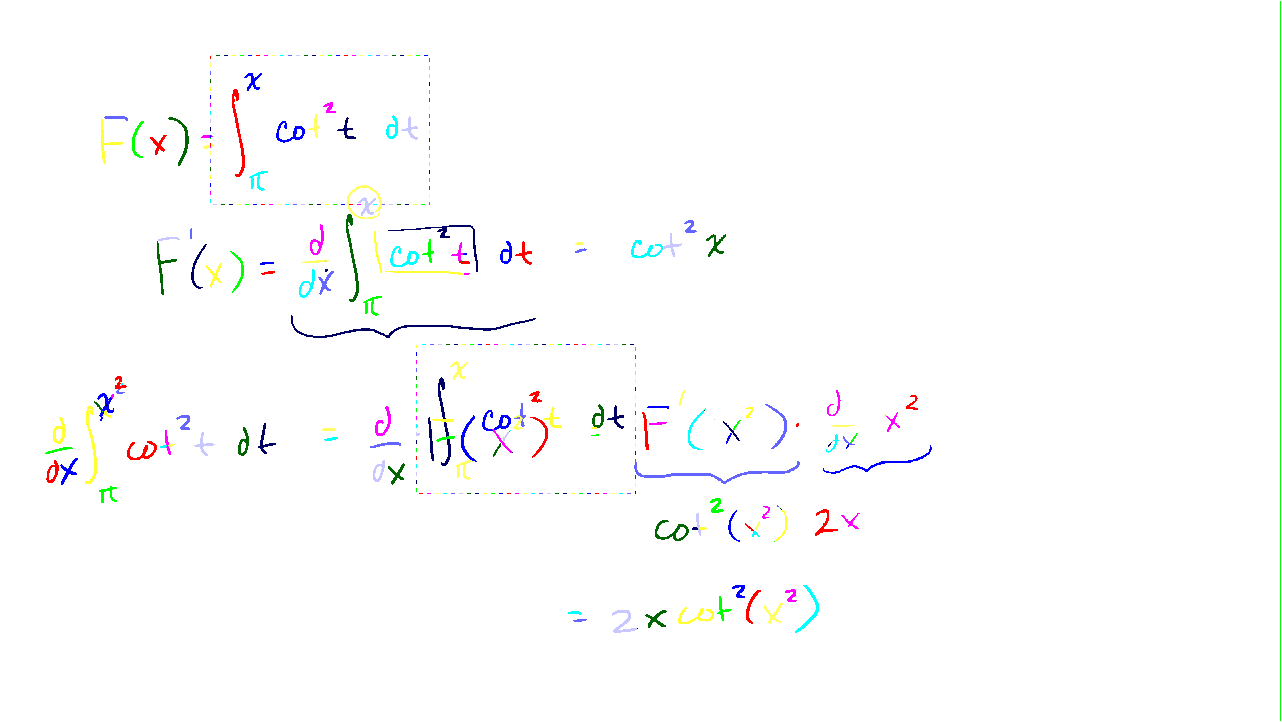 F(x) = ∫_π^x cot² t dt
F'(x) = d/dx ∫_π^x cot² t dt = cot² x
d/dx ∫_π^{x²} cot² t dt = d/dx F(x²) F'(x²) · d/dx x²
cot²(x²) 2x
= 2x cot²(x²)